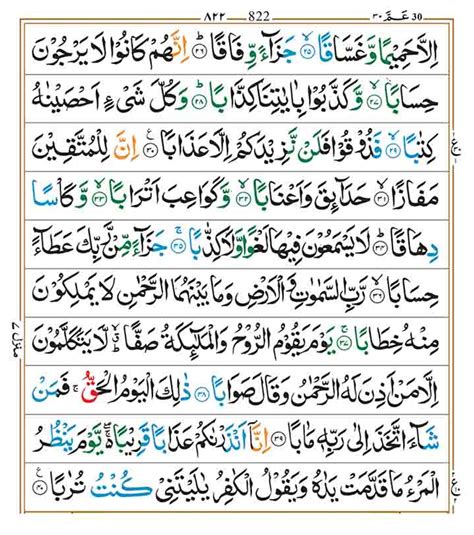 30 عَمَّ ٣٠ 822 ٨٢٢
اِلَّا حَمِيْمًا وَّغَسَّاقًا ﴿٢٥﴾ جَزَآءً وِّفَاقًا ﴿٢٦﴾ اِنَّهُمْ كَانُوْا لَا يَرْجُوْنَ
حِسَابًا ﴿٢٧﴾ وَّكَذَّبُوْا بِاٰيٰتِنَا كِذَّابًا ﴿٢٨﴾ وَكُلَّ شَىْءٍ اَحْصَيْنٰهُ
كِتٰبًا ﴿٢٩﴾ فَذُوْقُوْا فَلَنْ نَّزِيْدَكُمْ اِلَّا عَذَابًا ﴿٣٠﴾ اِنَّ لِلْمُتَّقِيْنَ
مَفَازًا ﴿٣١﴾ حَدَآئِقَ وَاَعْنَابًا ﴿٣٢﴾ وَّكَوَاعِبَ اَتْرَابًا ﴿٣٣﴾ وَّكَاْسًا
دِهَاقًا ﴿٣٤﴾ لَا يَسْمَعُوْنَ فِيْهَا لَغْوًا وَّلَا كِذّٰبًا ﴿٣٥﴾ جَزَآءً مِّنْ رَّبِّكَ عَطَآءً
حِسَابًا ﴿٣٦﴾ رَّبِّ السَّمٰوٰتِ وَالْاَرْضِ وَمَا بَيْنَهُمَا الرَّحْمٰنِ لَا يَمْلِكُوْنَ
مِنْهُ خِطَابًا ﴿٣٧﴾ يَوْمَ يَقُوْمُ الرُّوْحُ وَالْمَلٰٓئِكَةُ صَفًّا لَّا يَتَكَلَّمُوْنَ
اِلَّا مَنْ اَذِنَ لَهُ الرَّحْمٰنُ وَقَالَ صَوَابًا ﴿٣٨﴾ ذٰلِكَ الْيَوْمُ الْحَقُّ فَمَنْ
شَآءَ اتَّخَذَ اِلٰى رَبِّهٖ مَاٰبًا ﴿٣٩﴾ اِنَّاۤ اَنْذَرْنٰكُمْ عَذَابًا قَرِيْبًا يَّوْمَ يَنْظُرُ
الْمَرْءُ مَا قَدَّمَتْ يَدٰهُ وَيَقُوْلُ الْكٰفِرُ يٰلَيْتَنِىْ كُنْتُ تُرٰبًا ﴿٤٠﴾
منزل ٧